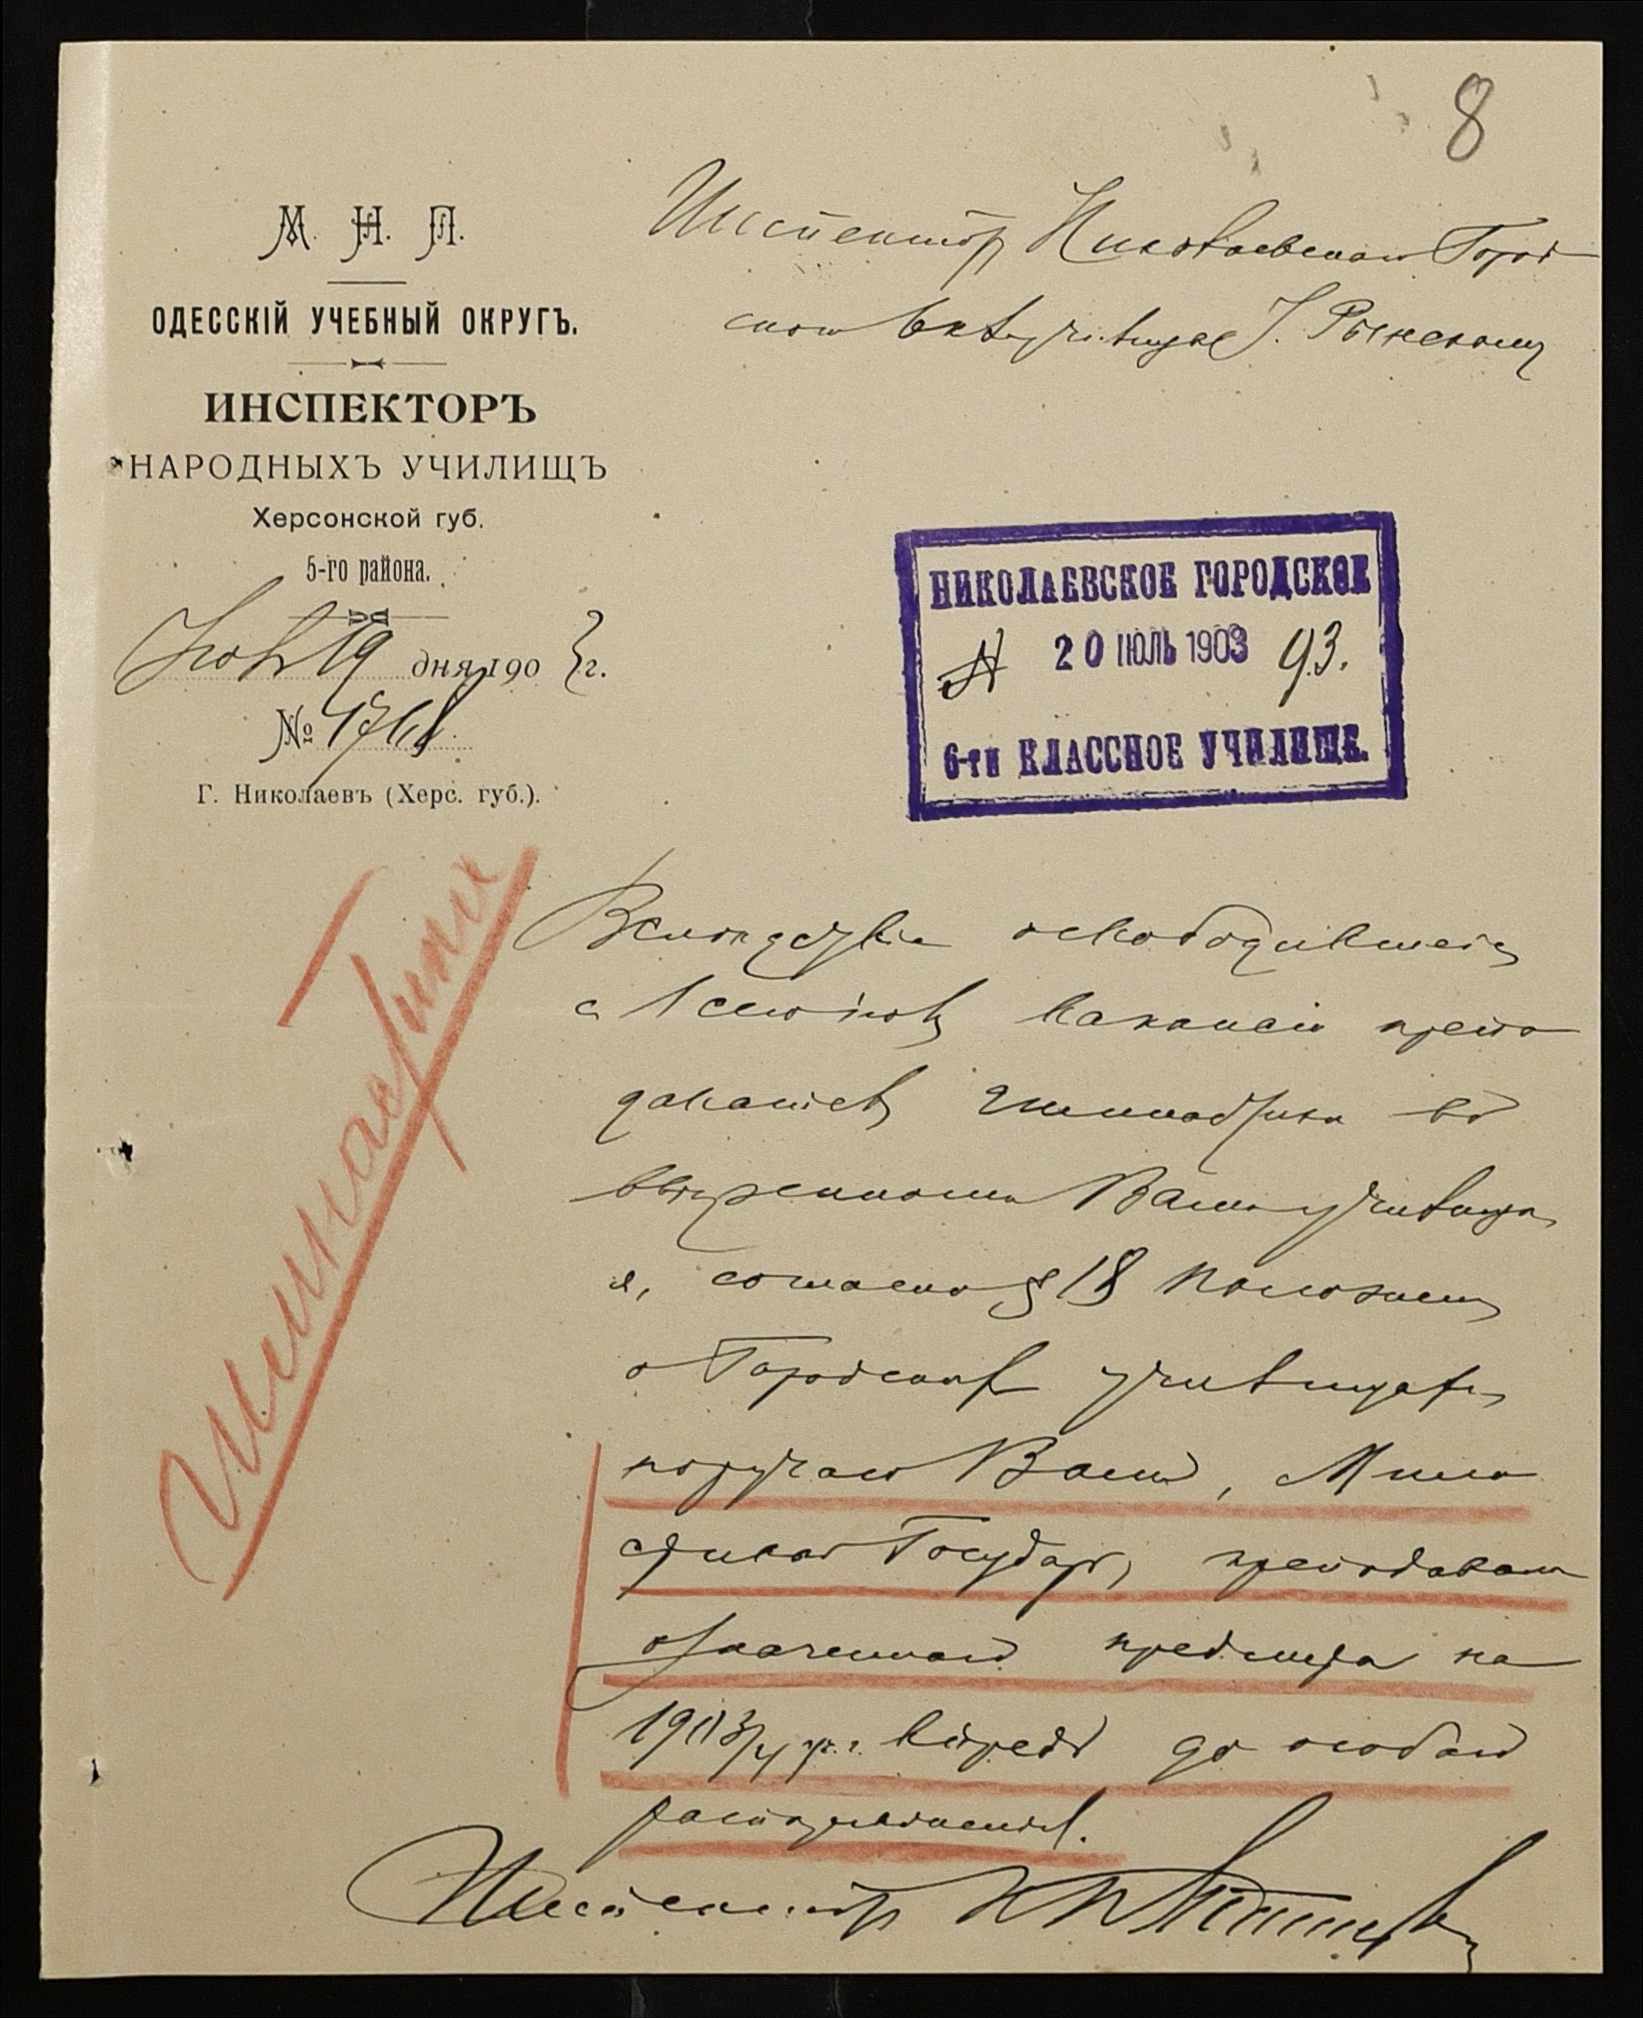 8
М. Н. П.
ОДЕССКІЙ УЧЕБНЫЙ ОКРУГЪ.
ИНСПЕКТОРЪ
НАРОДНЫХЪ УЧИЛИЩЪ
Херсонской губ.
5-го района.
19 дня 1903 г.
№ 1768
Г. Николаевъ (Херс. губ.).
Инспектору Николаевскаго Город
скаго 6 кл. училища Г.
НИКОЛАЕВСКОЕ ГОРОДСКОЕ
20 ІЮЛЬ 1903 93.
6-ти КЛАССНОЕ УЧИЛИЩЕ.
Вслѣдствіе освободившейся
с 1 сего іюля вакансіи препо
даванія гимнастики во
ввѣренномъ Вамъ училищѣ,
я, согласно § 18 Положенія
о Городскихъ училищахъ,
поручаю Вамъ, Мило
стивый Государь, преподаваніе
означеннаго предмета на
1903/4 уч. г. впредь до особаго
распоряженія.
Инспекторъ
гимнастика